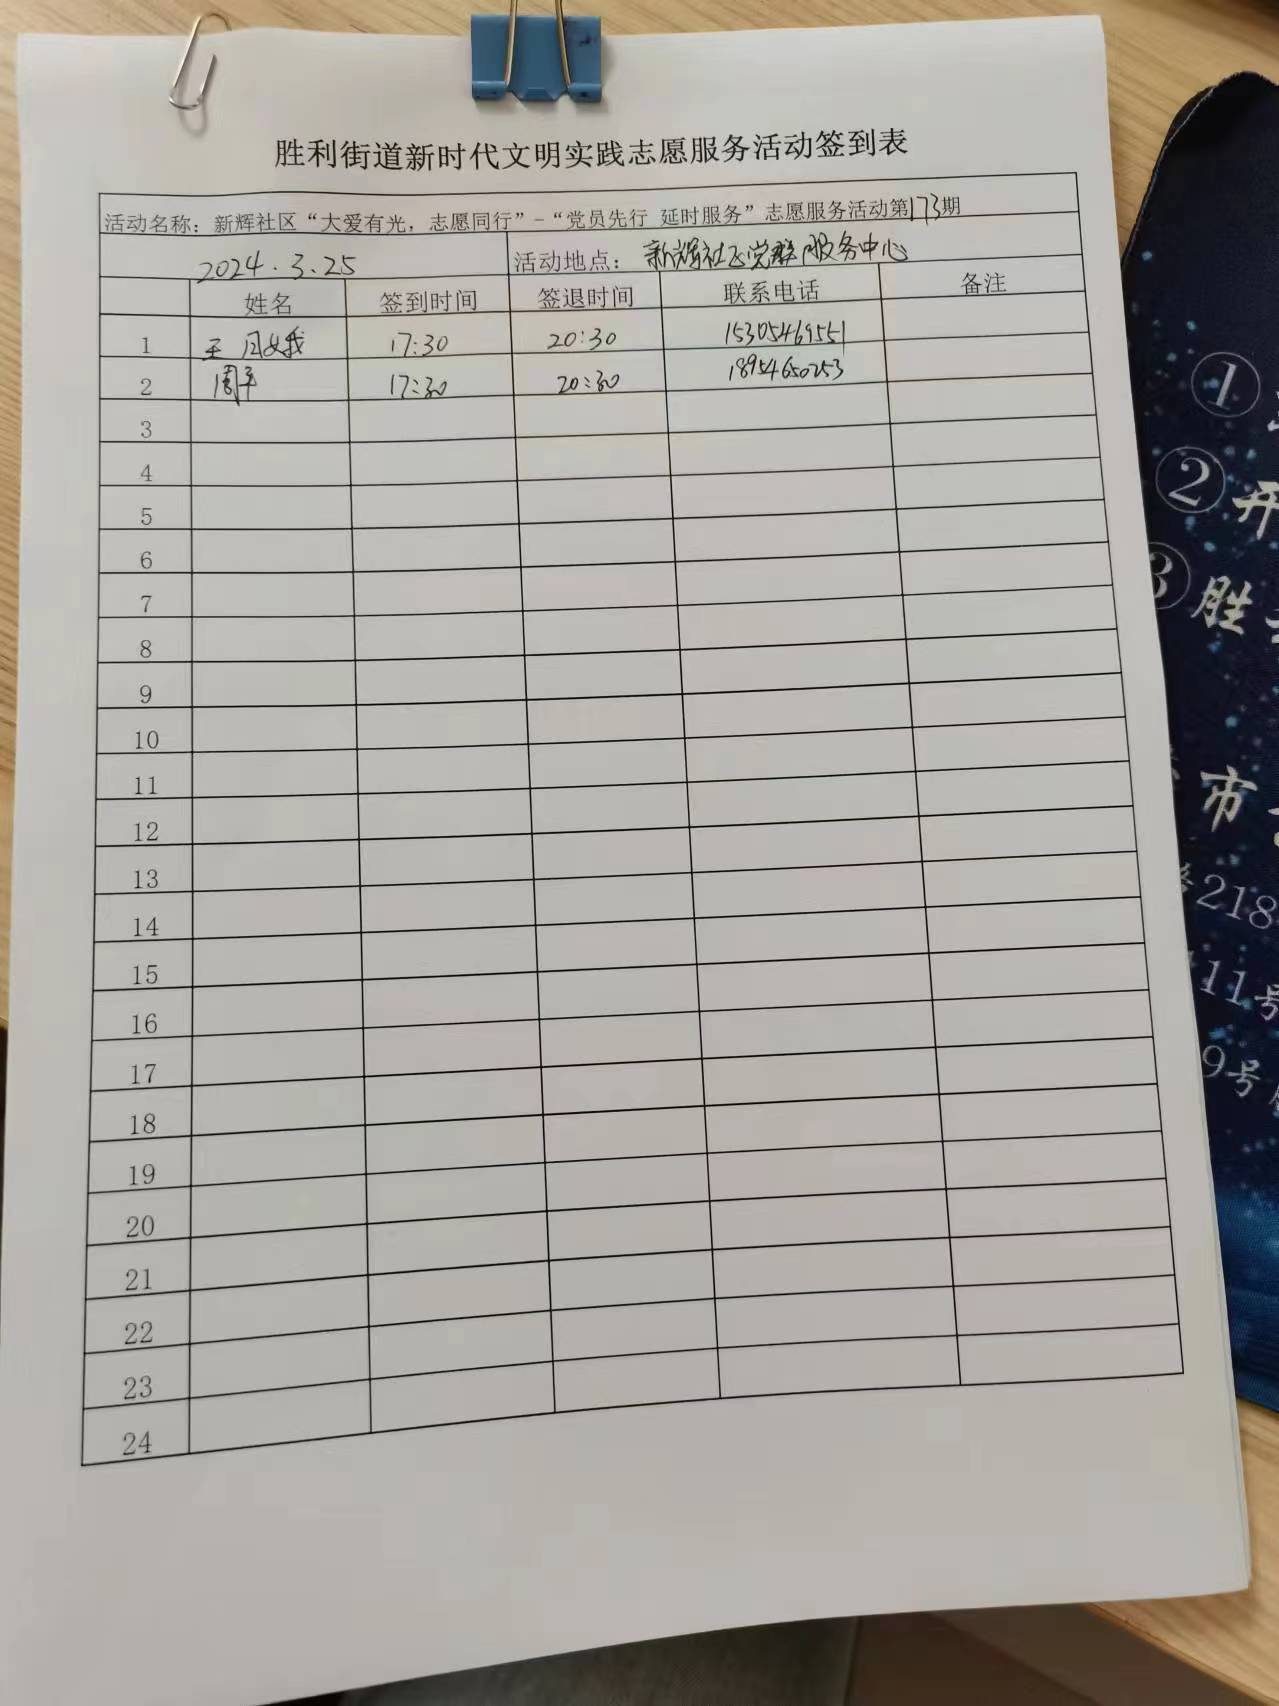 胜利街道新时代文明实践志愿服务活动签到表
活动名称：新辉社区“大爱有光，志愿同行”-“党员先行 延时服务”志愿服务活动第173期
2024.3.25 活动地点：新辉社区党群服务中心
姓名 签到时间 签退时间 联系电话 备注
1 王月娥 17:30 20:30 15305469551
2 周平 17:30 20:30 18954650253
3
4
5
6
7
8
9
10
11
12
13
14
15
16
17
18
19
20
21
22
23
24
①
②开
③胜
市
218
11号
9号